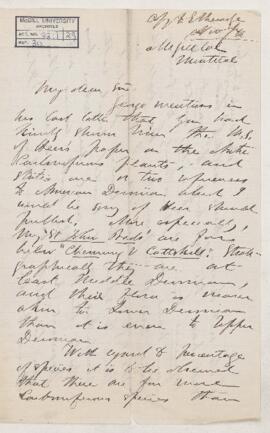 McGILL UNIVERSITY
ARCHIVES
ACC. NO.
REF.
McGill Col
Montreal
My dear Sir
mentions in
his last letter that you had
kindly shown him the M.S.
of Heer's paper on the
Carboniferous plants, and
states one or two
to American Devonian which I
would be sorry if Heer should
publish. More especially,
my "St John beds" are far
below "Chemung & Catskill".
graphically they are at
least Middle Devonian,
and their flora is nearer
akin to Lower Devonian
than it is even to Upper
Devonian
With regard to percentage
of species it is to be observed
that there are far more
Carboniferous species than